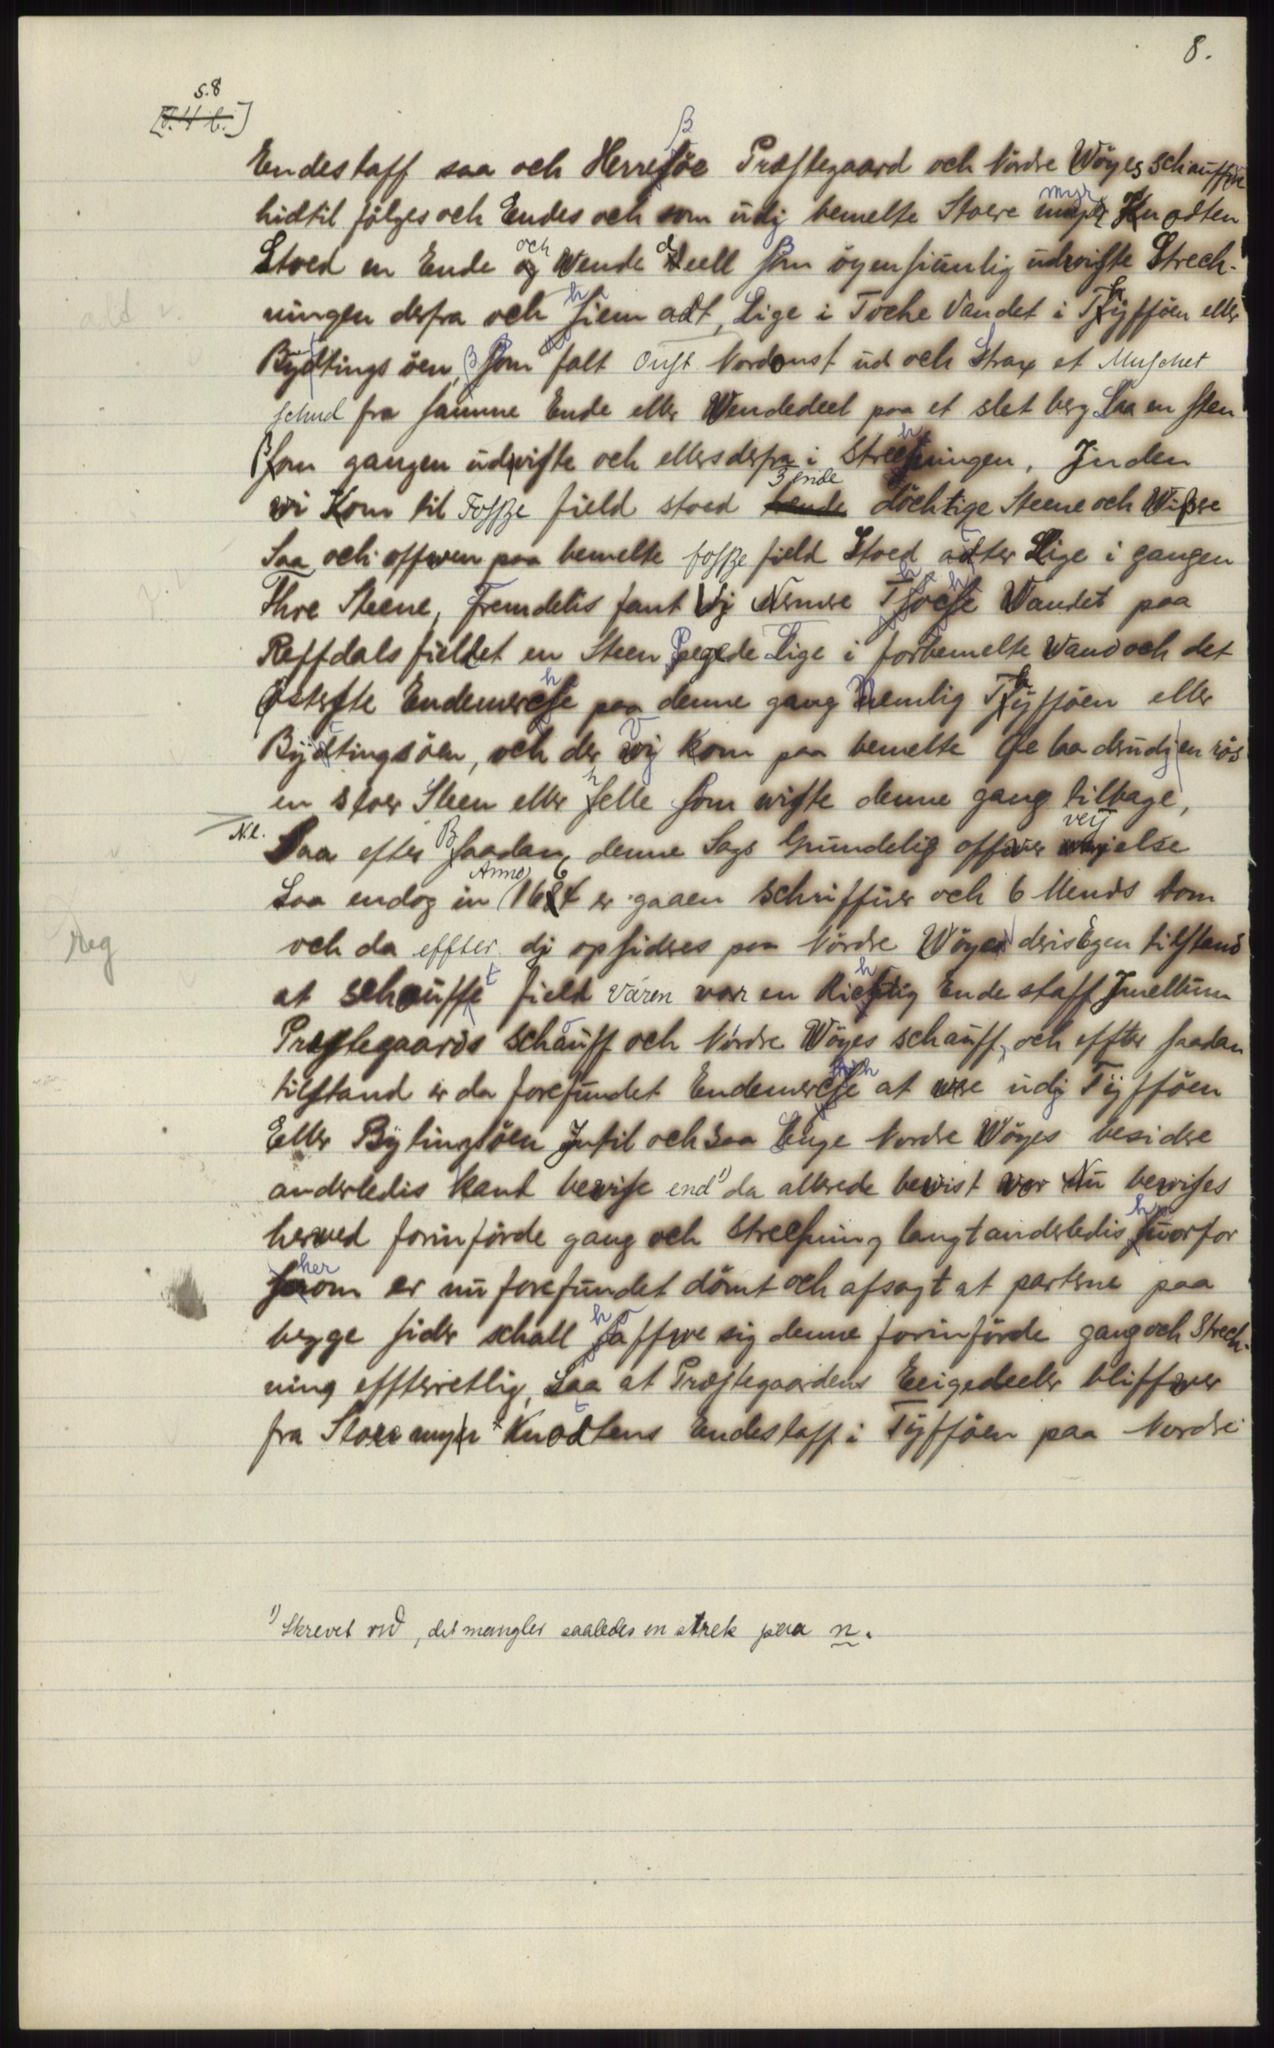 8.
s.8
Endestaff saa och Herresöe Præstegaard och Nordre Wöyes schauffue
hidtil fölges och Endes och som udj bemelte Stoere myr Knodten
Stoed en Ende och Wende deell som öyensiunlig udwiste Strech-
ningen derfra och hiem adt, Lige i Toche Vandet i Tyfföen eller
Bytings öen, som falt Oust Nordoust ud och Strax et Muschet
schud fra samme Ende eller Wendedeel paa et slet berg Laa en sten
som gangen udwiste och ellers derfra i Strechningen, Inden
wi Kom til Fosse field stoed 3 ende döchtige Steene och Wisse
Saa och offwen paa bemelte fosse field Stoed atter Lige i gangen
Thre Steene, fremdelis fant Vj Nemere Thoche Vandet paa
Reffdals fieldet en Steen Pegede Lige i forbemelte Wand och det
Österste Endemerche paa denne gang Nemlig Tyfföen eller
Bytingsöen, och der Vj kom paa bemelte Øe laa der udj en rös
en stoer Steen eller helle som wiste denne gang tilbage,
Nl. Saa efter saadan denne Sags Grundelig offwer veyelse
Saa endog in Anno 1664 er gaaen schriffuer och 6 Mends Dom
och da effter dj opsidres paa Nordre Wöyes deris Egen tilstand
reg
at schaufft field Varen var en Richtig Ende staff Imellum
Præstegaards schauff och Nordre Wöyes schauff, och effter saadan
tilstand er da forefundet Endemerche at were udj Tyfföen
Eller Bytingsöen Intil och saa Lenge Nordre Wöyes besidere
anderledis kand bewise end 1) da allerede bewist war Nu bewises
herved forinförde gang och Strechning langt anderledis huorfor
herom er nu forefundet dömt och afsagt at parterne paa
begge sider schall haffwe sig denne forinförde gang och Strech-
ning effterretlig, Saa at Præstegaardens Eeigedeeler bliffwer
fra Store myr Knottens Endestaff i Tyfföen paa Nordre
1) Skrevet vid, det mangler saaledes en strek paa n.